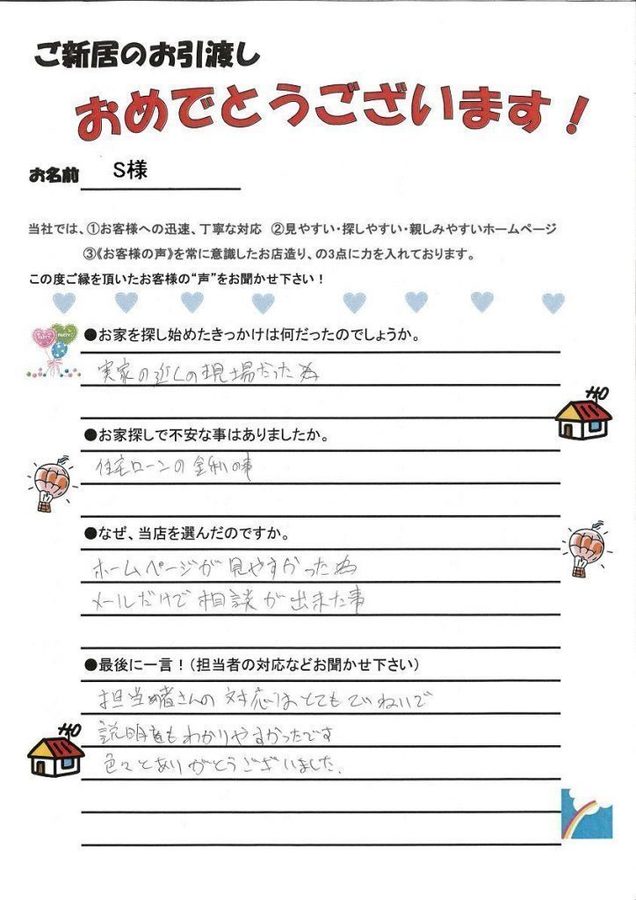 ご新居のお引渡し
おめでとうございます！
お名前 S様
当社では、①お客様への迅速、丁寧な対応 ②見やすい・探しやすい・親しみやすいホームページ
③《お客様の声》を常に意識したお店造り、の3点に力を入れております。
この度ご縁を頂いたお客様の“声”をお聞かせ下さい！
●お家を探し始めたきっかけは何だったのでしょうか。
実家の近くの現場だった為
●お家探しで不安な事はありましたか。
住宅ローンの金利の事
●なぜ、当店を選んだのですか。
ホームページが見やすかった為
メールだけで相談が出来た事
●最後に一言！（担当者の対応などお聞かせ下さい）
担当者さんの対応はとてもていねいで
説明もわかりやすかったです
色々とありがとうございました.